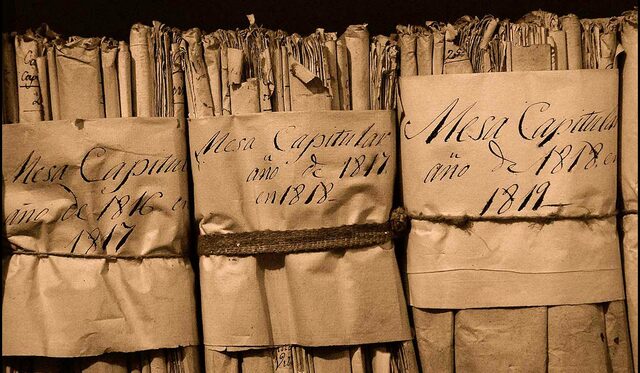 Mesa Capitular
año de 1816 en
1817
Mesa Capitular
año de 1817
en 1818
Mesa Capitular
año de 1818 en
1819